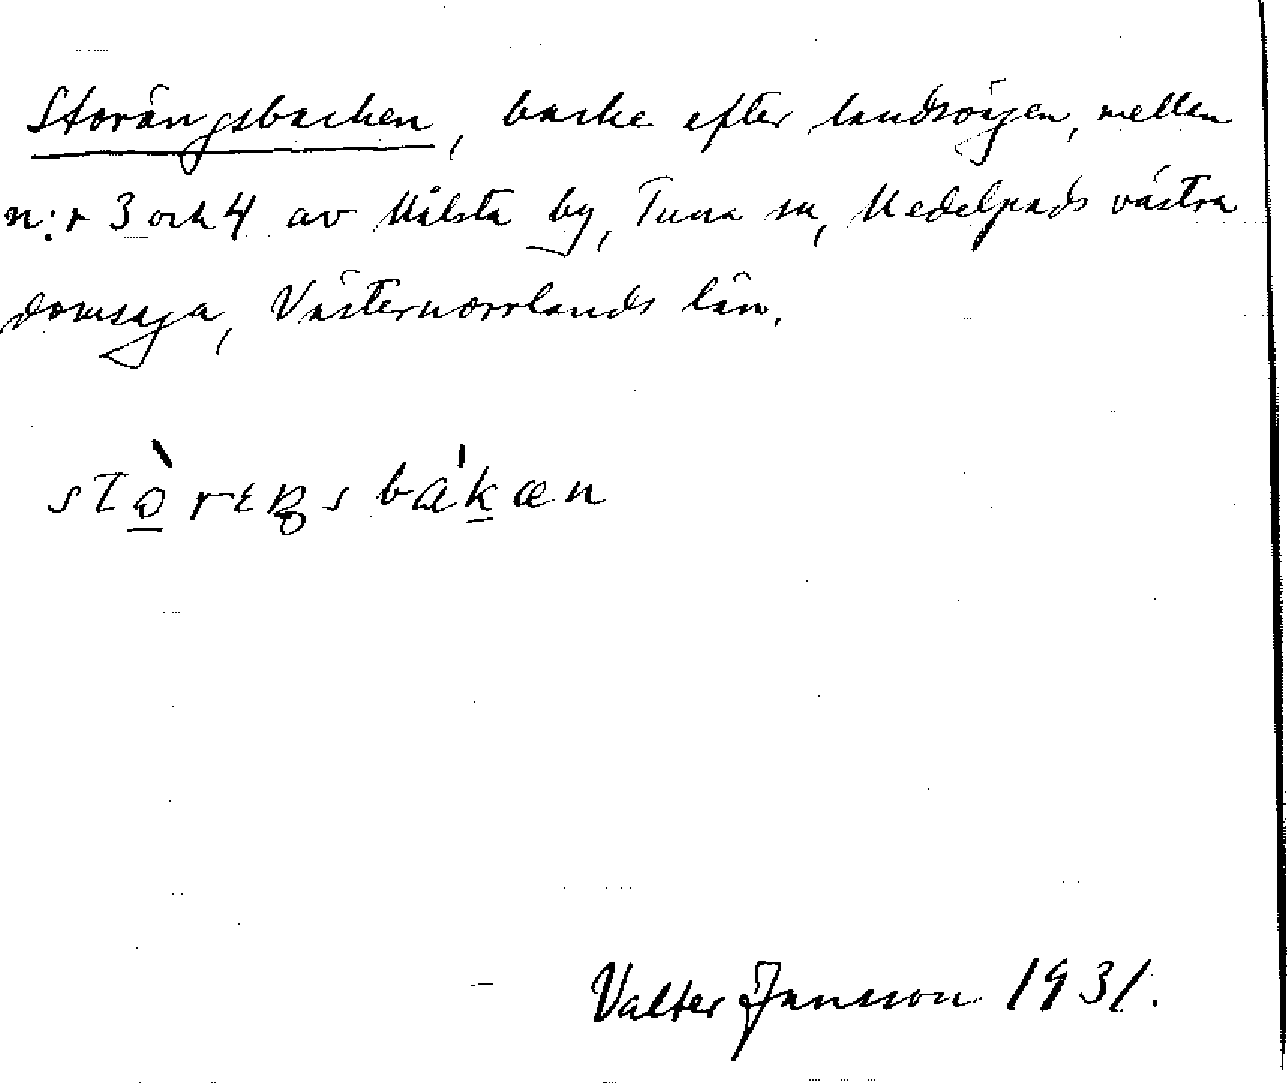 Storängsbacken, backe efter landsvägen, mellan
n:r 3 och 4 av Målsta by, Tuna sn, Medelpads västra
domsaga, Västernorrlands län.
stò̱rɛŋsbáḵæn
Valter Jansson 1931.